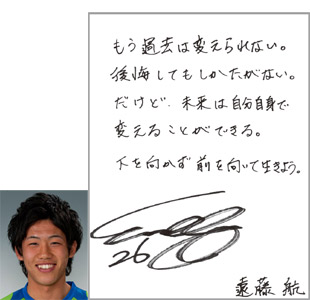 もう過去は変えられない。
後悔してもしかたがない。
だけど、未来は自分自身で
変えることができる。
下を向かず前を向いて生きよう。
26
遠藤 航